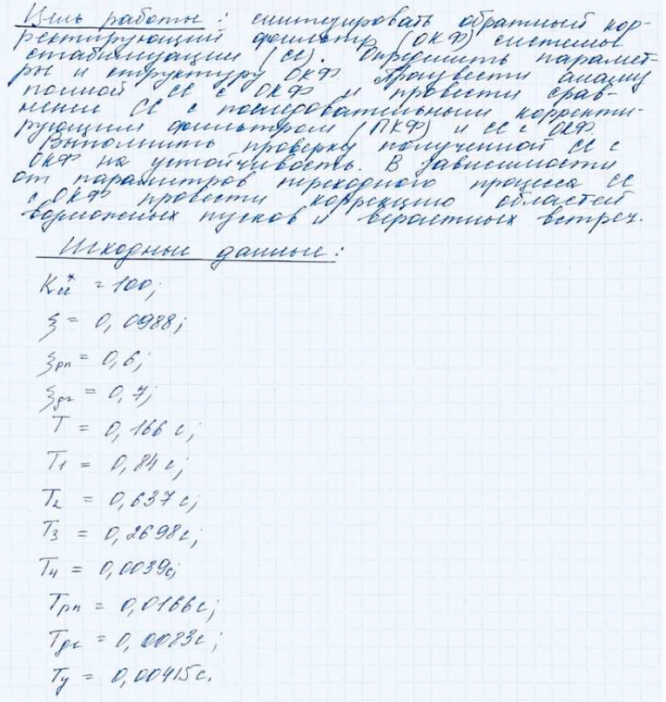 Цель работы: синтезировать обратный кор-
ректирующий фильтр (ОКФ) системы
стабилизации (СС). Определить парамет-
ры и структуру ОКФ. Произвести анализ
полной СС с ОКФ и провести срав-
нение СС с последовательным корректи-
рующим фильтром (ПКФ) и СС с ОКФ.
Выполнить проверку полученной СС с
ОКФ на устойчивость. В зависимости
от параметров переходного процесса СС
с ОКФ провести коррекцию областей
возможных пусков и вероятных встреч.
Исходные данные:
K*= 100;
ξ = 0,0988;
ξрп = 0,6;
ξдг = 0,7;
T = 0,166 с;
T1 = 0,84 с;
T2 = 0,637 с;
T3 = 0,2698 с;
T4 = 0,0039 с;
Tрп = 0,0166 с;
Tдг = 0,0083 с;
Tу = 0,00415 с.